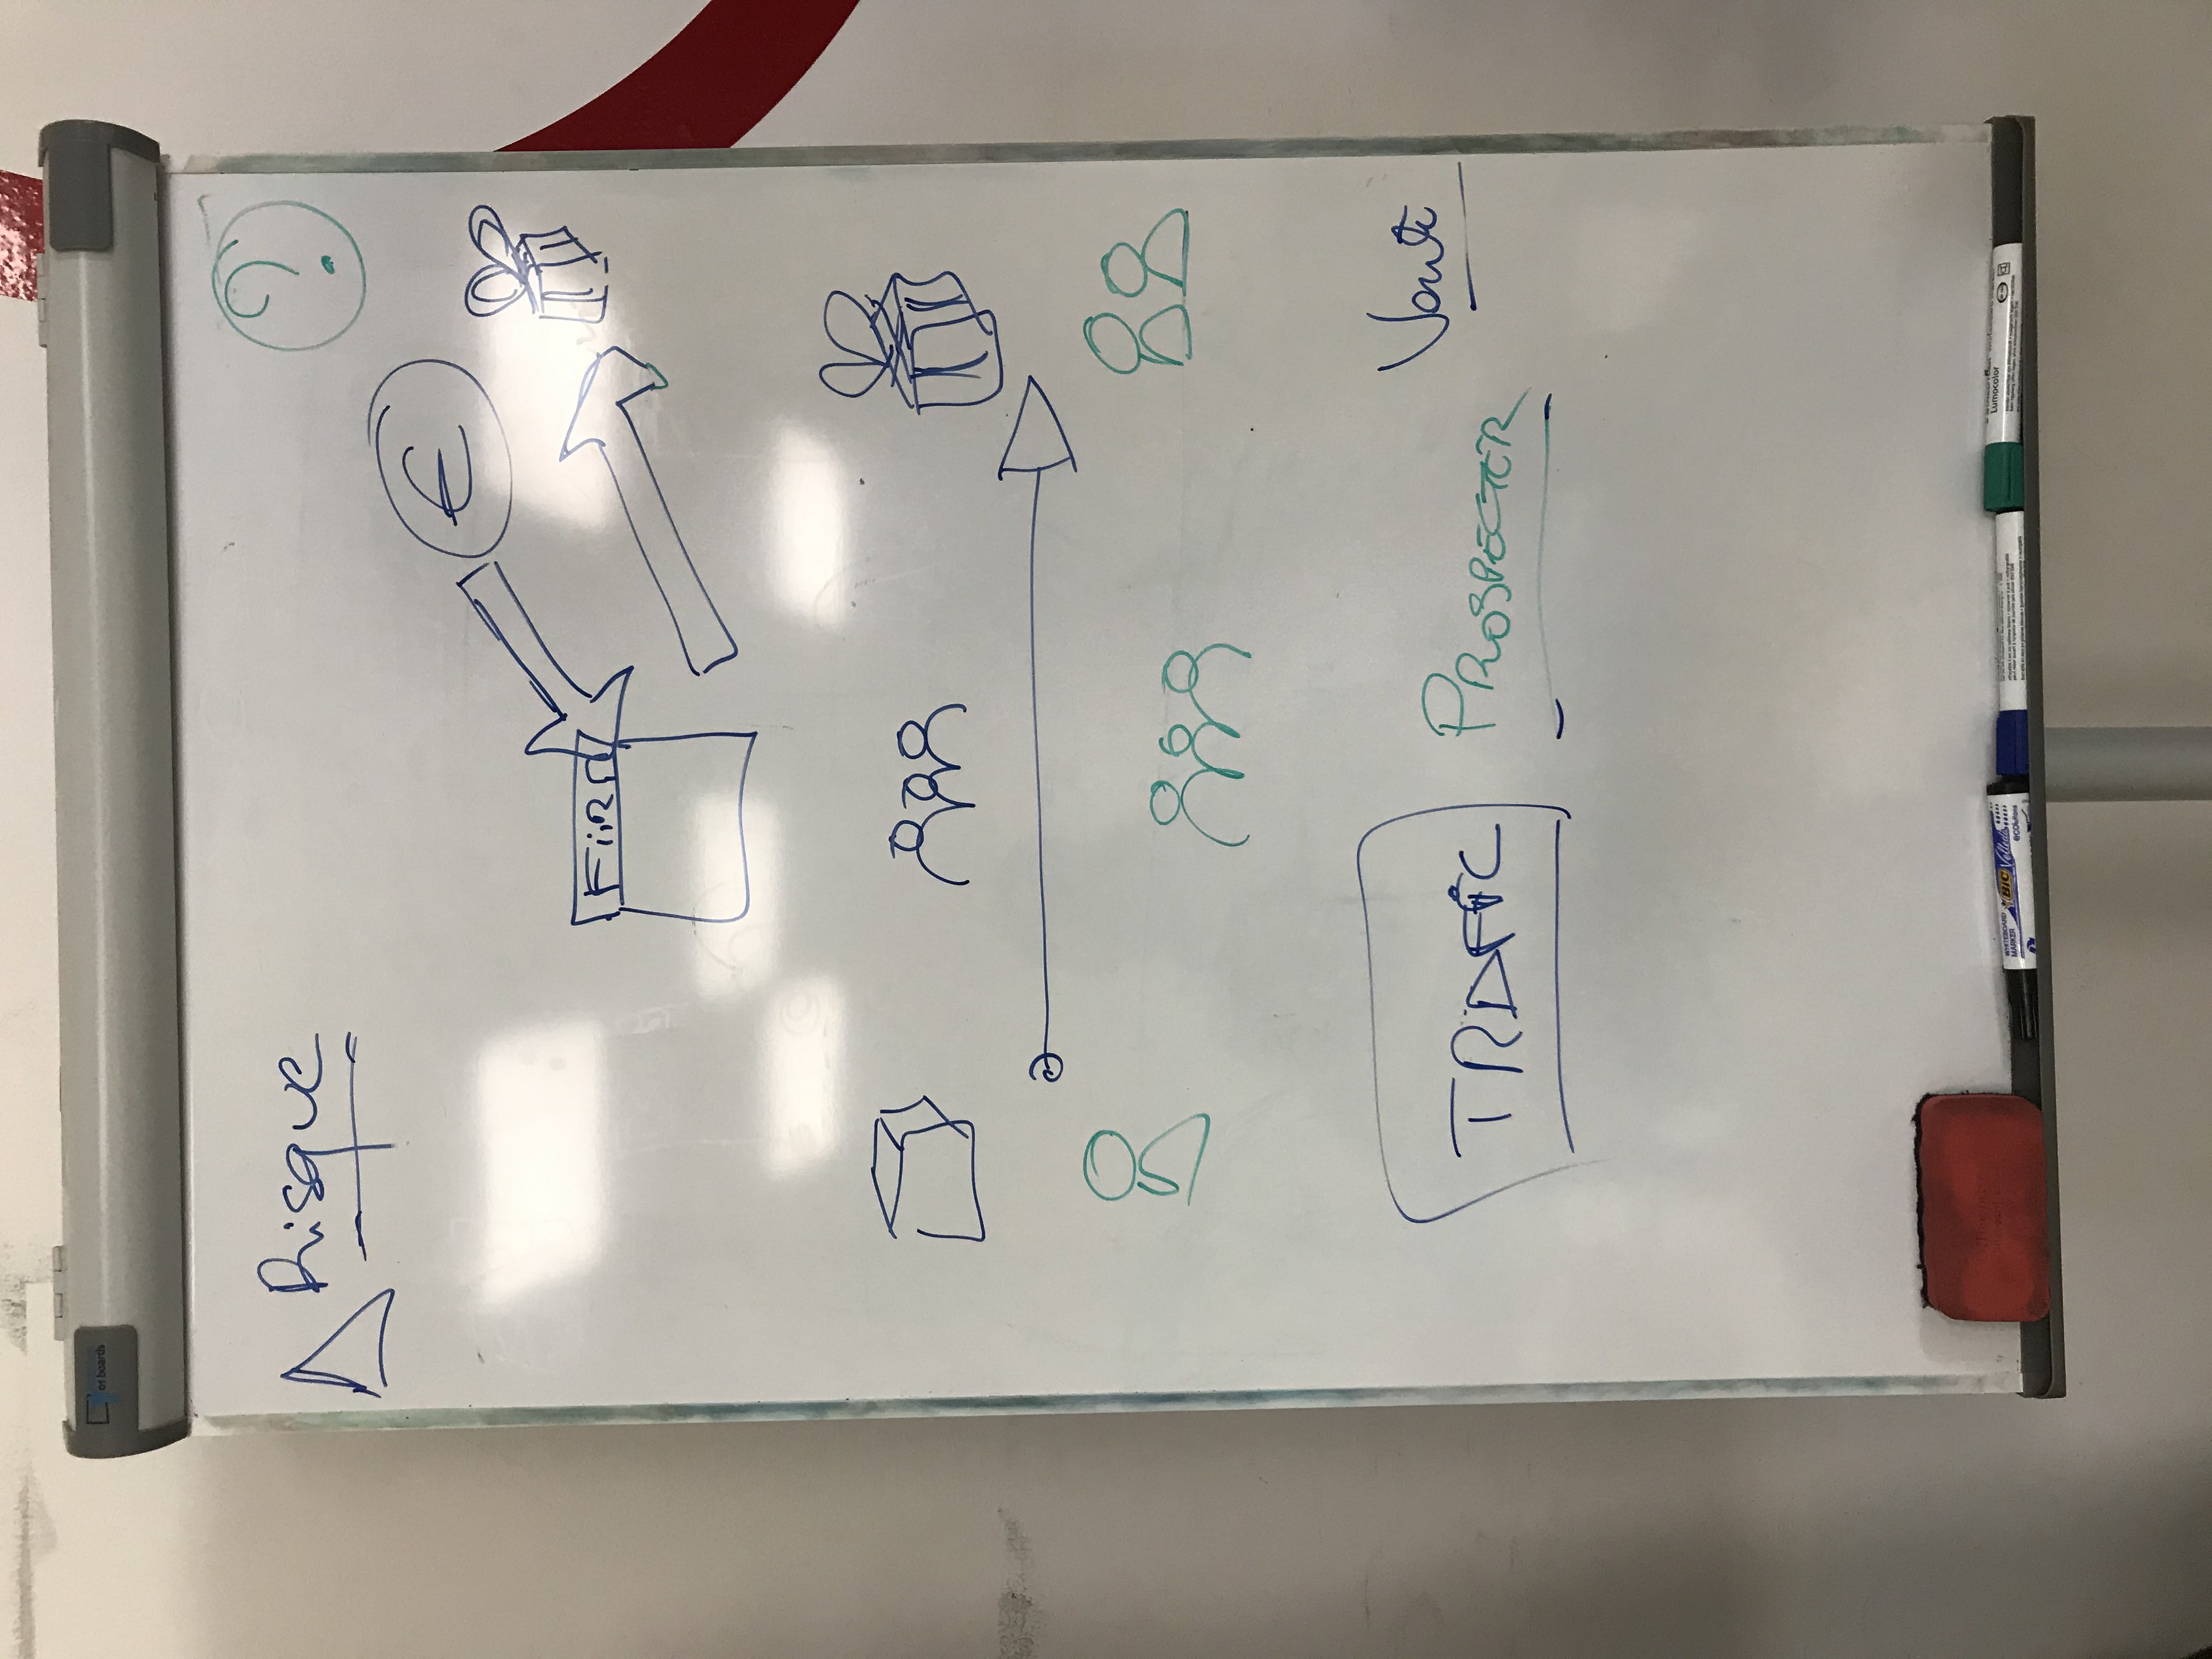 of boards
Risque
?
€
FIRM
TRAFFIC
PROSPECTER
Vente
WHITEBOARD
MARKER
BIC Velleda
ECOlutions
Lumocolor